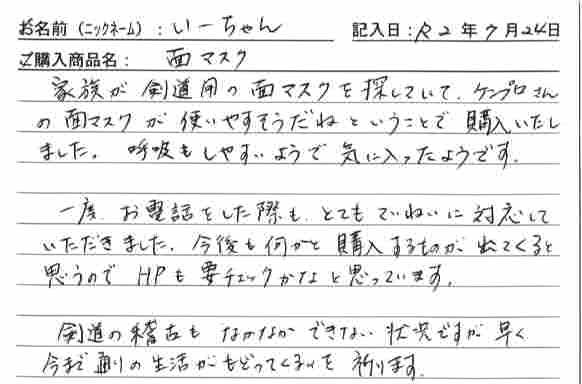 お名前（ニックネーム）：いーちゃん 記入日：R2年7月24日
ご購入商品名： 面マスク
家族が剣道用の面マスクを探していて、ケンプロさん
の面マスクが使いやすそうだねということで購入いたし
ました。呼吸もしやすいようで気に入ったようです。
一度、お電話をした際も、とてもていねいに対応して
いただきました。今後も何かと購入するものが出てくると
思うのでHPも要チェックかなと思っています。
剣道の稽古もなかなかできない状況ですが早く
今まで通りの生活がもどってくるいを祈ります。